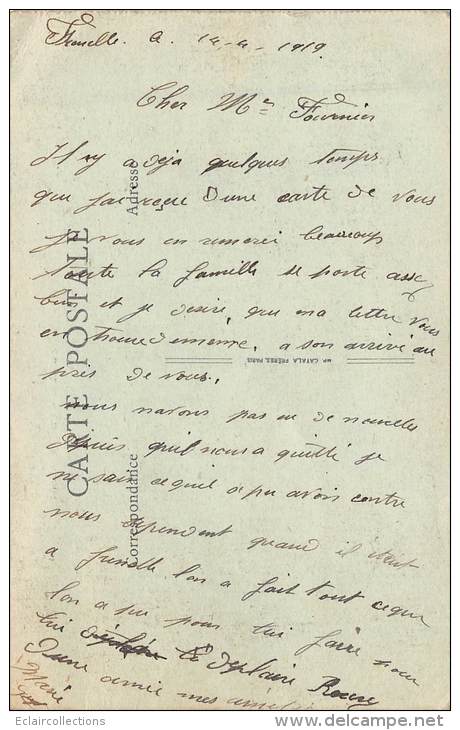 14-4-1919
Cher Mr Fournier
Il y a deja quelques temps
que j'ai reçue d'une carte de vous
je vous en remerci beaucoup
toute la famille se porte assez
bien et je desire que ma lettre vous
en trouve de meme, a son arrivé au
près de vous.
nous navons pas eu de nouvelles
depuis quil nous a quitté je
ne sais ce quil a pu avoir contre
nous cependant quand il etait
a l'on a fait tout ce que
l'on a pu pour lui faire pour
lui deplaire
Dune amie mes
CARTE POSTALE
Correspondance
Adresse
IMP. CATALA FRÈRES, PARIS
Eclaircollections